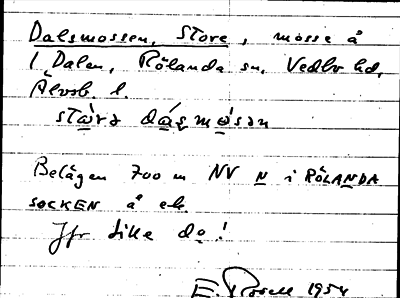 Dalsmossen, Store, mosse å
1 Dalen, Rölanda sn, Vedbo hd,
Älvsb. l.
Belägen 700 m NV n i RÖLANDA
SOCKEN å ek.
Jfr Lille do!
E. Rosell 1954